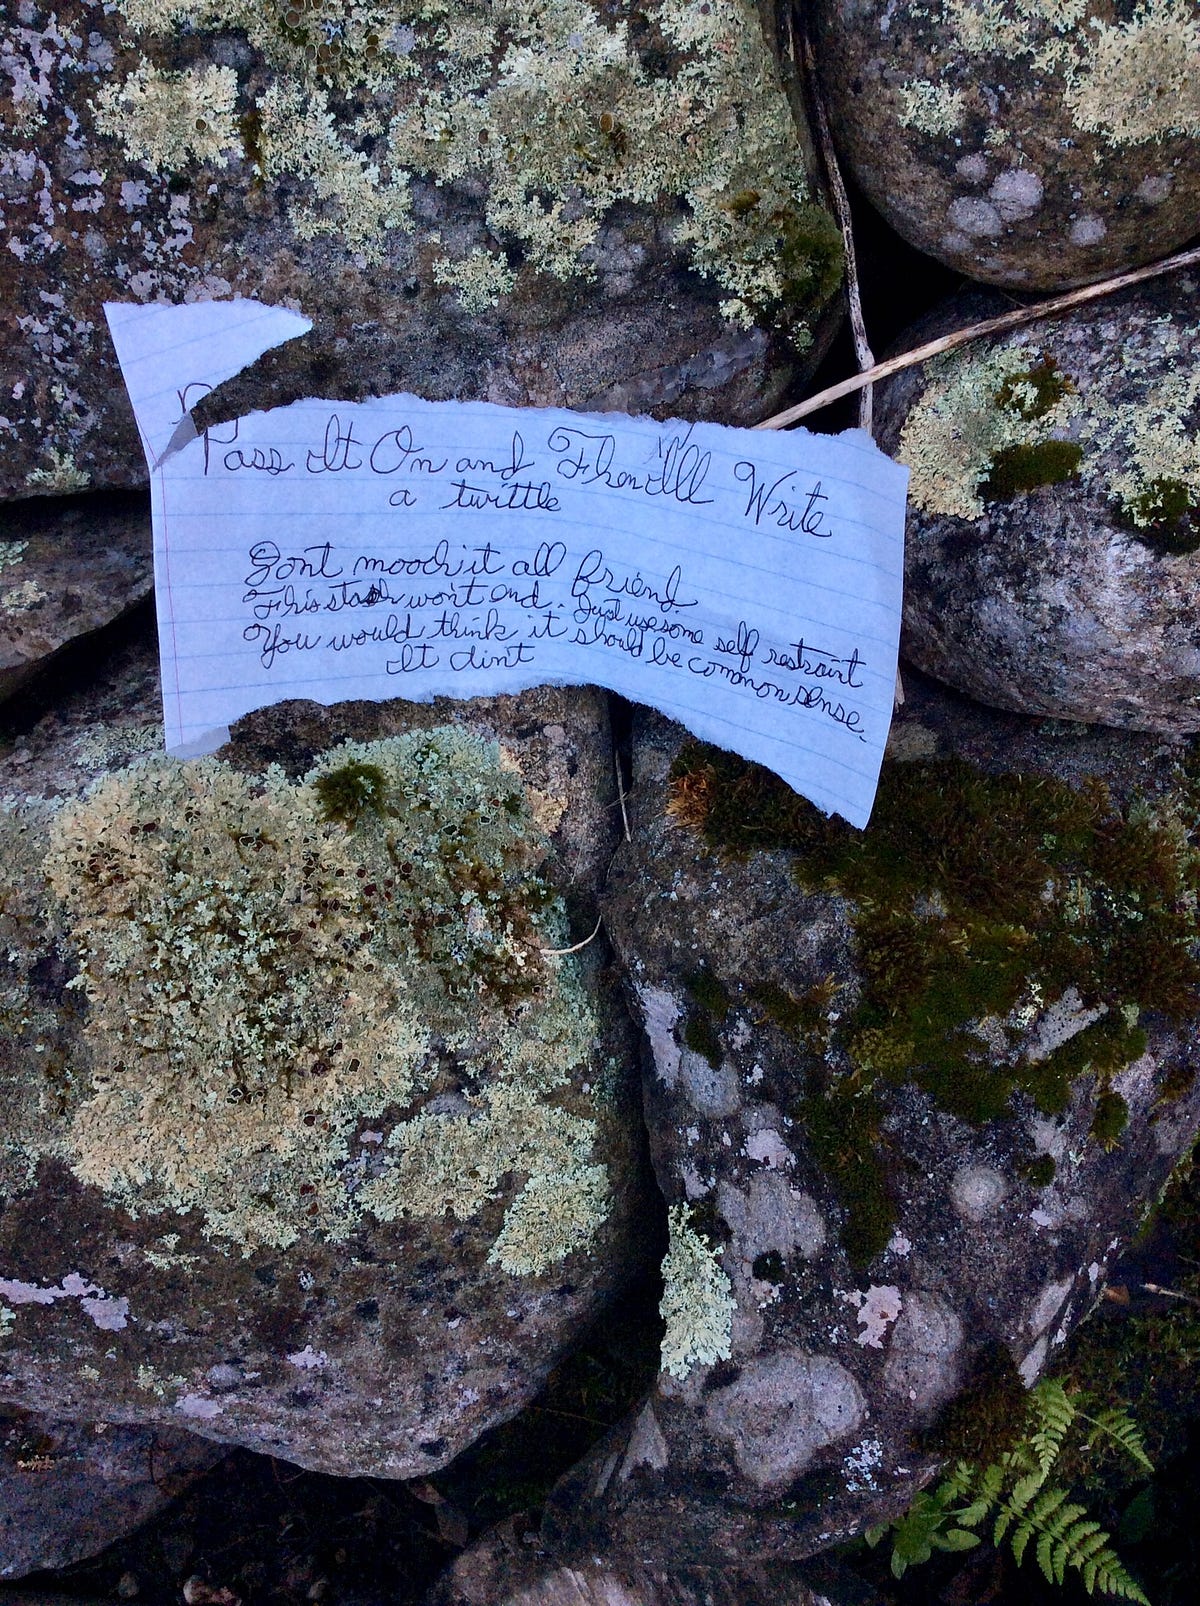 Pass It On and Then I'll Write
a twittle
Don't mooch it all friend
This stash won't end. Just use some self restraint
You would think it should be common sense.
It aint